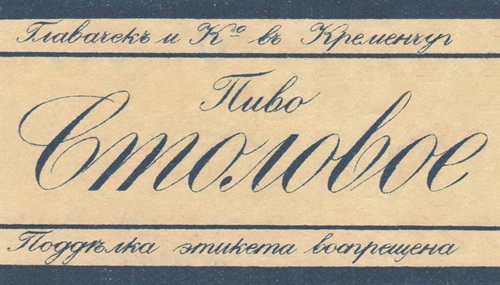 Главачекъ и Кº въ Кременчуг
Пиво
Столовое
Поддѣлка этикета воспрещена